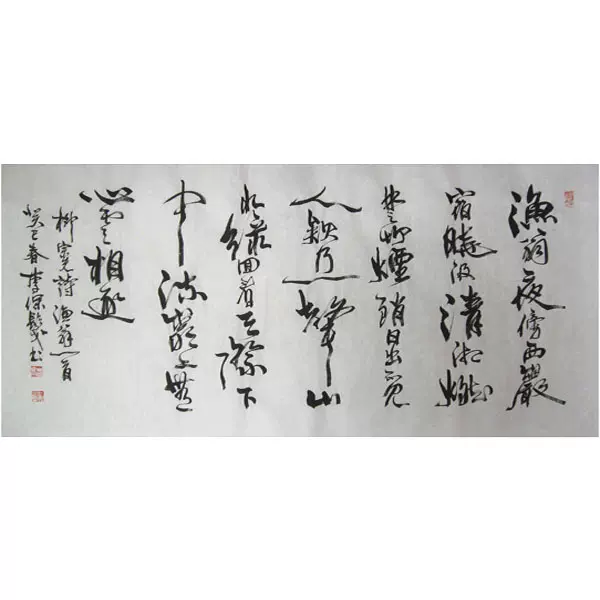 漁翁夜傍西巖
宿曉汲清湘燃
楚竹煙銷日出不見
人欸乃一聲山
水綠回看天際下
中流巖上無
心雲相逐
柳宗元詩漁翁一首
癸巳春李保书